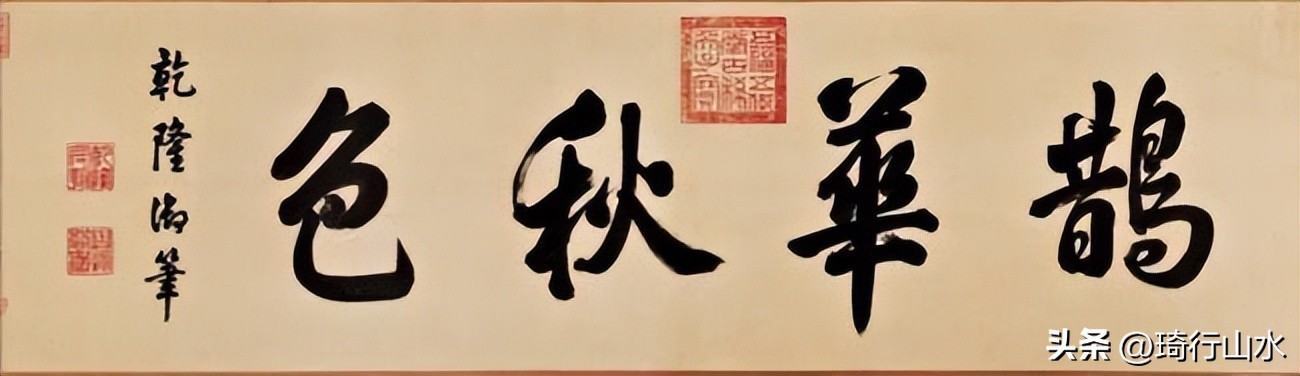 鵲華秋色
乾隆御筆
头条 @琦行山水